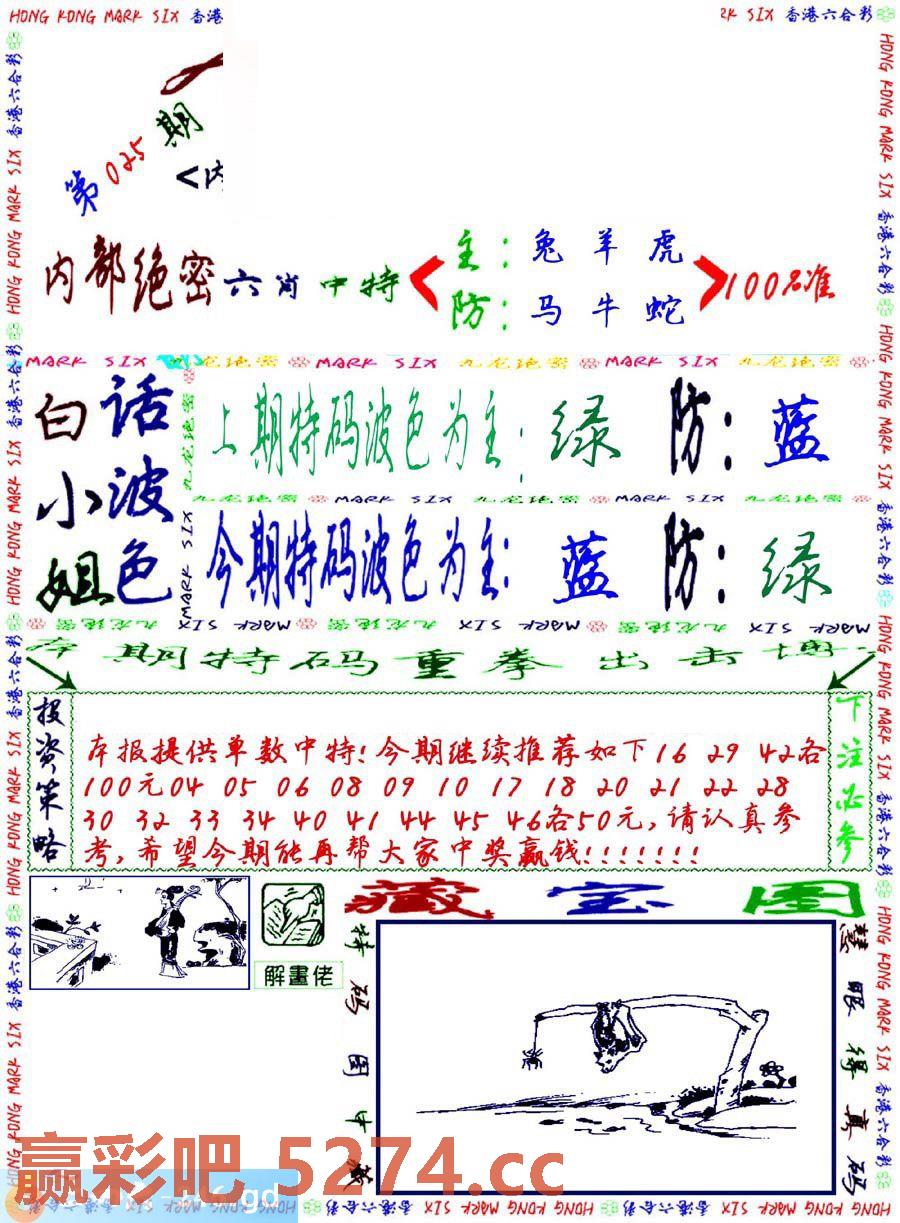 HONG KONG MARK SIX 香港
RK SIX 香港六合彩
第025期
<内
内部绝密六肖中特
主：兔羊虎
防：马牛蛇
100%准
MARK SIX 九龙绝密 MARK SIX 九龙绝密 MARK SIX 九龙绝密
白话
小波
姐色
上期特码波色为主：绿 防：蓝
九龙绝密 MARK SIX 九龙绝密 MARK SIX 九龙绝密
今期特码波色为主：蓝 防：绿
MARK SIX 九龙绝密 MARK SIX 九龙绝密 MARK SIX 九龙绝密
期特码重拳出击
投资策略
本报提供单数中特!今期继续推荐如下16 29 42各
100元04 05 06 08 09 10 17 18 20 21 22 28
30 32 33 34 40 41 44 45 46各50元,请认真参
考,希望今期能再帮大家中奖赢钱!!!!!!!
下注必参
藏宝图
解畫佬
特码图中藏
慧眼得真码
HONG KONG MARK SIX 香港六合彩
赢彩吧 5274.cc